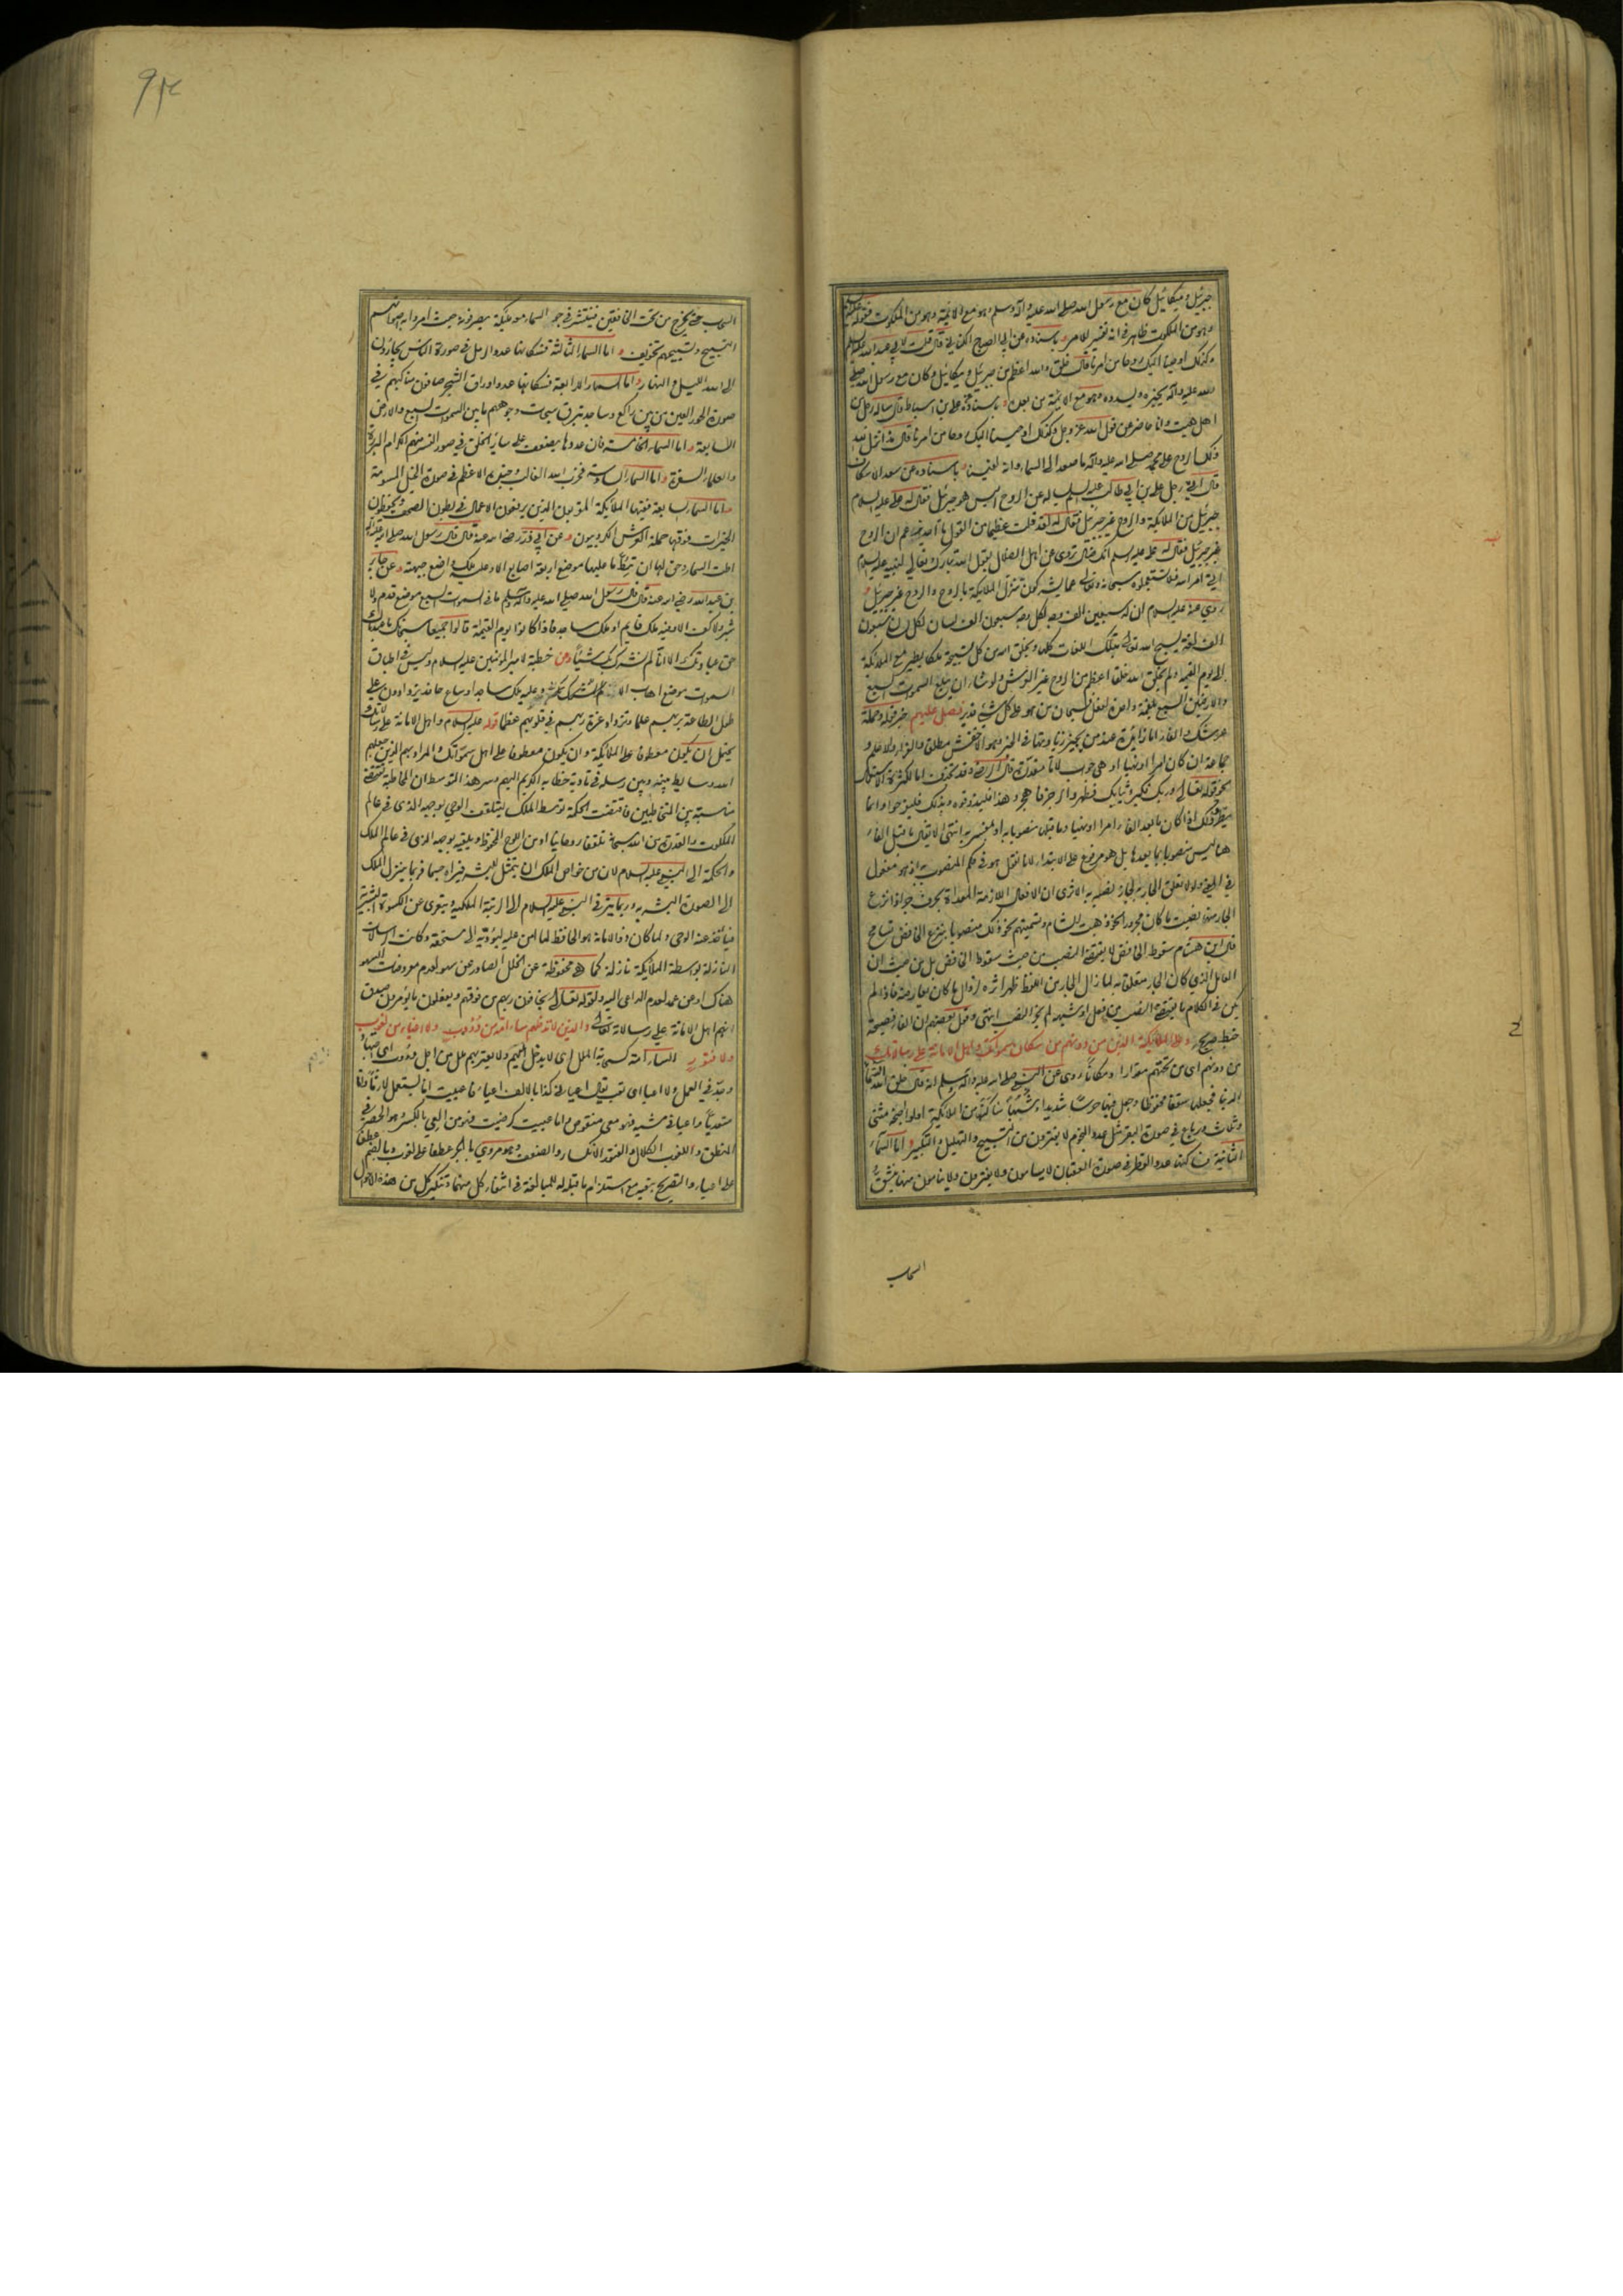 جبرئيل وميكائيل كان مع رسول الله صلى الله عليه وآله وسلم وهو مع الائمة وهو من الملكوت فقوله عليه السلم
وهو من الملكوت ظاهر في انه تفسير للامر وباسناده عن ابي الصباح الكناني قال قلت لابي عبد الله عليه السلم
وكذلك اوحينا اليك روحا من امرنا قال خلق والله اعظم من جبرئيل وميكائيل وكان مع رسول الله صلى
الله عليه وآله يخبره ويسدده وهو مع الائمة من بعده وباسناده عن علي بن اسباط قال ساله رجل من
اهل هيت وانا حاضر عن قول الله عز وجل وكذلك اوحينا اليك روحا من امرنا قال منذ انزل الله
ذلك الروح على محمد صلى الله عليه وآله ما صعد الى السماء وانه لفينا وباسناده عن سعد الاسكاف
قال اتى رجل علي بن ابي طالب عليه السلم يساله عن الروح اليس هو جبرئيل فقال له علي عليه السلام
جبرئيل من الملائكة والروح غير جبرئيل فقال له لقد قلت عظيما من القول ما احد يزعم ان الروح
غير جبرئيل فقال له علي عليه السلم انك ضال تروي عن اهل الضلال يقول الله تبارك وتعالى لنبيه عليه السلام
اتى امر الله فلا تستعجلوه سبحانه وتعالى عما يشركون تنزل الملائكة بالروح والروح غير جبرئيل و
روي عنه عليه السلام ان له سبعين الف وجه لكل وجه سبعون الف لسان لكل لسان سبعون
الف لغة يسبح الله تعالى بتلك اللغات كلها ويخلق الله من كل تسبيحة ملكا يطير مع الملائكة
الى يوم القيمة ولم يخلق الله خلقا اعظم من الروح غير العرش ولو شاء ان يبلع السموات السبع
والارضين السبع بلقمة واحدة لفعل فسبحان من هو على كل شيء قدير فصل عليهم خبر قوله وحملة
عرشك والفاء اما زائدة عند من يجيز زيادتها في الخبر وهو الاخفش مطلقا والفراء والاعلم و
جماعة ان كان امرا او نهيا او هي جواب لاما مقدرة قال الرضي وقد تحذف اما لكثرة الاستعمال
نحو قوله تعالى وربك فكبر وثيابك فطهر والرجز فاهجر وهذا فليذوقوه وبذلك فليفرحوا وانما
يطرد ذلك اذا كان ما بعد الفاء امرا او نهيا وما قبلها منصوبا به او بمفسر به انتهى لا يقال ما قبل الفاء
هنا ليس منصوبا بما بعدها بل هو مرفوع على الابتداء لانا نقول هو في حكم المنصوب به اذ هو مفعول
في المعنى ولولا تعلق الجار به لجاز نصبه به الا ترى ان الافعال اللازمة المعداة بحرف جر اذا نزع
قال ابن هشام سقوط الخافض لا يقتضي النصب من حيث سقوط الخافض بل من حيث ان
العامل الذي كان الجار متعلقا به لما زال الجار من اللفظ ظهر اثره لزوال ما كان يعارضه فاذا لم
يكن في الكلام ما يقتضي النصب من فعل او شبهه لم يجز النصب انتهى وقول بعضهم ان الفاء فصيحة
خبط صريح وعلى الملائكة الذين من دونهم من سكان سمواتك واهل الامانة على رسالاتك
من دونهم اي من تحتهم مقدارا ومكانا روي عن النبي صلى الله عليه وآله وسلم انه قال خلق الله السماء
الدنيا فجعلها سقفا محفوظا وجعل فيها حرسا شديدا وشهبا ساكنها من الملائكة اولو اجنحة مثنى
وثلاث ورباع في صورة البقر مثل عدد النجوم لا يفترون من التسبيح والتهليل والتكبير واما السماء
الثانية فساكنها عدد القطر في صورة العقبان لا يسامون ولا يفترون ولا ينامون منها ينشق
السحاب
السحاب حتى يخرج من تحت الخافقين فينتشر في جو السماء معه ملئكة يصرفونه حيث امروا به اصواتهم
التسبيح وتسبيحهم تخويف واما السماء الثالثة فسكانها عدد الرمل في صورة الناس يجارون
الى الله الليل والنهار واما السماء الرابعة فسكانها عدد اوراق الشجر صافون مناكبهم في
صورة الحور العين من بين راكع وساجد تبرق سبحات وجوههم ما بين السموات السبع والارض
السابعة واما السماء الخامسة فان عددها يضعف على سائر الخلق في صورة النسور منهم الكرام البررة
والعلماء السفرة واما السماء السادسة فحزب الله الغالب وجنده الاعظم في صورة الخيل المسومة
واما السماء السابعة ففيها الملائكة المقربون الذين يرفعون الاعمال في بطون الصحف ويحفظون
الخيرات فوقها حملة العرش الكروبيون وعن ابي ذر رضي الله عنه قال قال رسول الله صلى الله عليه وآله
اطت السماء وحق لها ان تئط ما عليها موضع اربعة اصابع الا وعليه ملك واضع جبهته وعن جابر
بن عبد الله رضي الله عنه قال قال رسول الله صلى الله عليه وآله وسلم ما في السموات السبع موضع قدم ولا
شبر ولا كف الا وفيه ملك قايم او ملك ساجد فاذا كانوا يوم القيمة قالوا جميعا سبحانك ما عبدناك
حق عبادتك الا انا لم نشرك بك شيئا ومن خطبة لامير المؤمنين عليه السلام وليس في اطباق
السموات موضع اهاب الا وعليه ملك ساجد او ساع حافد يزدادون على
طول الطاعة بربهم علما وتزداد عزة ربهم في قلوبهم عظما قوله عليه السلام واهل الامانة على رسالاتك
يحتمل ان يكون معطوفا على الملائكة وان يكون معطوفا على اهل سمواتك والمراد بهم الذين جعلهم
الله وسايط بينه وبين رسله في تادية خطابه الكريم اليهم وسر هذا التوسط ان المخاطبة تقتضي
مناسبة بين المتخاطبين فاقتضت الحكمة توسط الملك ليتلقف الوحي بوجهه الذي في عالم
الملكوت والقدرة من الله سبحانه تلقفا روحانيا او من اللوح المحفوظ ويلقيه بوجهه الذي في عالم الملك
والحكمة الى النبي عليه السلام لان من خواص الملك ان يتمثل للبشر فيراه جسما فربما ينزل الملك
الى الصورة البشرية وربما يترقى النبي عليه السلام الى الرتبة الملكية ويتعرى عن الكسوة البشرية
فياخذ عنه الوحي ولما كان ذو الامانة هو الحافظ لما امن عليه ليؤديه الى مستحقه وكانت الرسالات
النازلة بواسطة الملائكة نازلة كما هي محفوظة عن الخلل الصادر عن سهو لعدم معروضات السهو
هناك او عن عمد لعدم الداعي اليه ولقوله تعالى يخافون ربهم من فوقهم ويفعلون ما يؤمرون صدق
انهم اهل الامانة على رسالاته تعالى والذين لا تدخلهم سامة من دؤوب ولا اعياء من لغوب
ولا فتور السامة كسحابة الملل اي لا يدخل عليهم ولا يعتريهم ملل من اجل دؤوب اي اجتهاد
وجد في العمل ولا اعياء اي تعب يقال اعيا في كذا بالالف اعياء فاعييت انا يستعمل لازما و
متعديا واعيا في مشيه فهو معي منقوص واما عييت كرضيت فهو من العي بالكسر وهو الحصر في
المنطق واللغوب الكلال والفتور الانكسار والضعف وهو مروي بالجر عطفا على لغوب وبالضم عطفا
على اعياء والتصريح بنفيه مع استلزام ما قبله له للمبالغة في انتفاء كل منهما وتنكير كل من هذه الاحوال